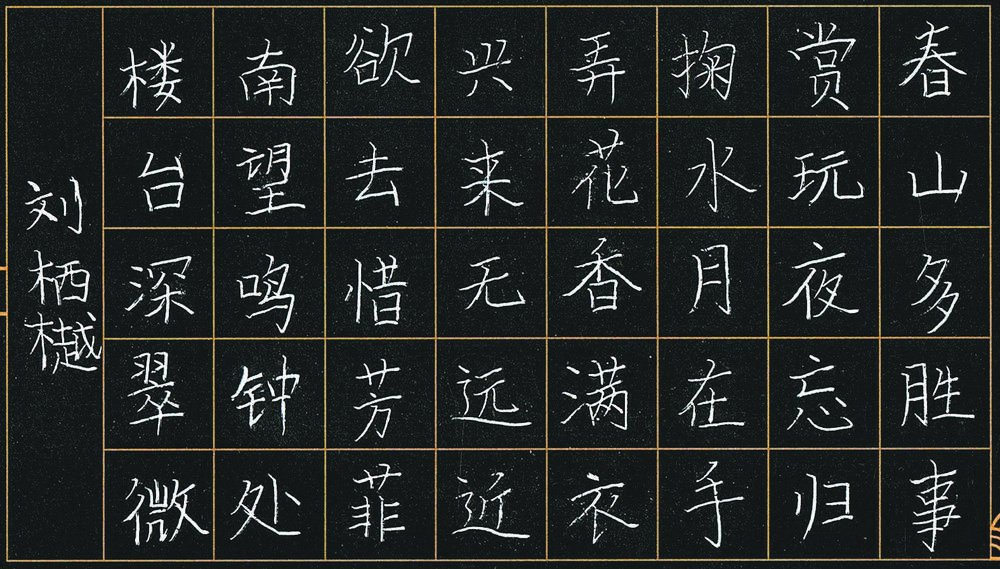 春山多胜事
赏玩夜忘归
掬水月在手
弄花香满衣
兴来无远近
欲去惜芳菲
南望鸣钟处
楼台深翠微
刘栖樾